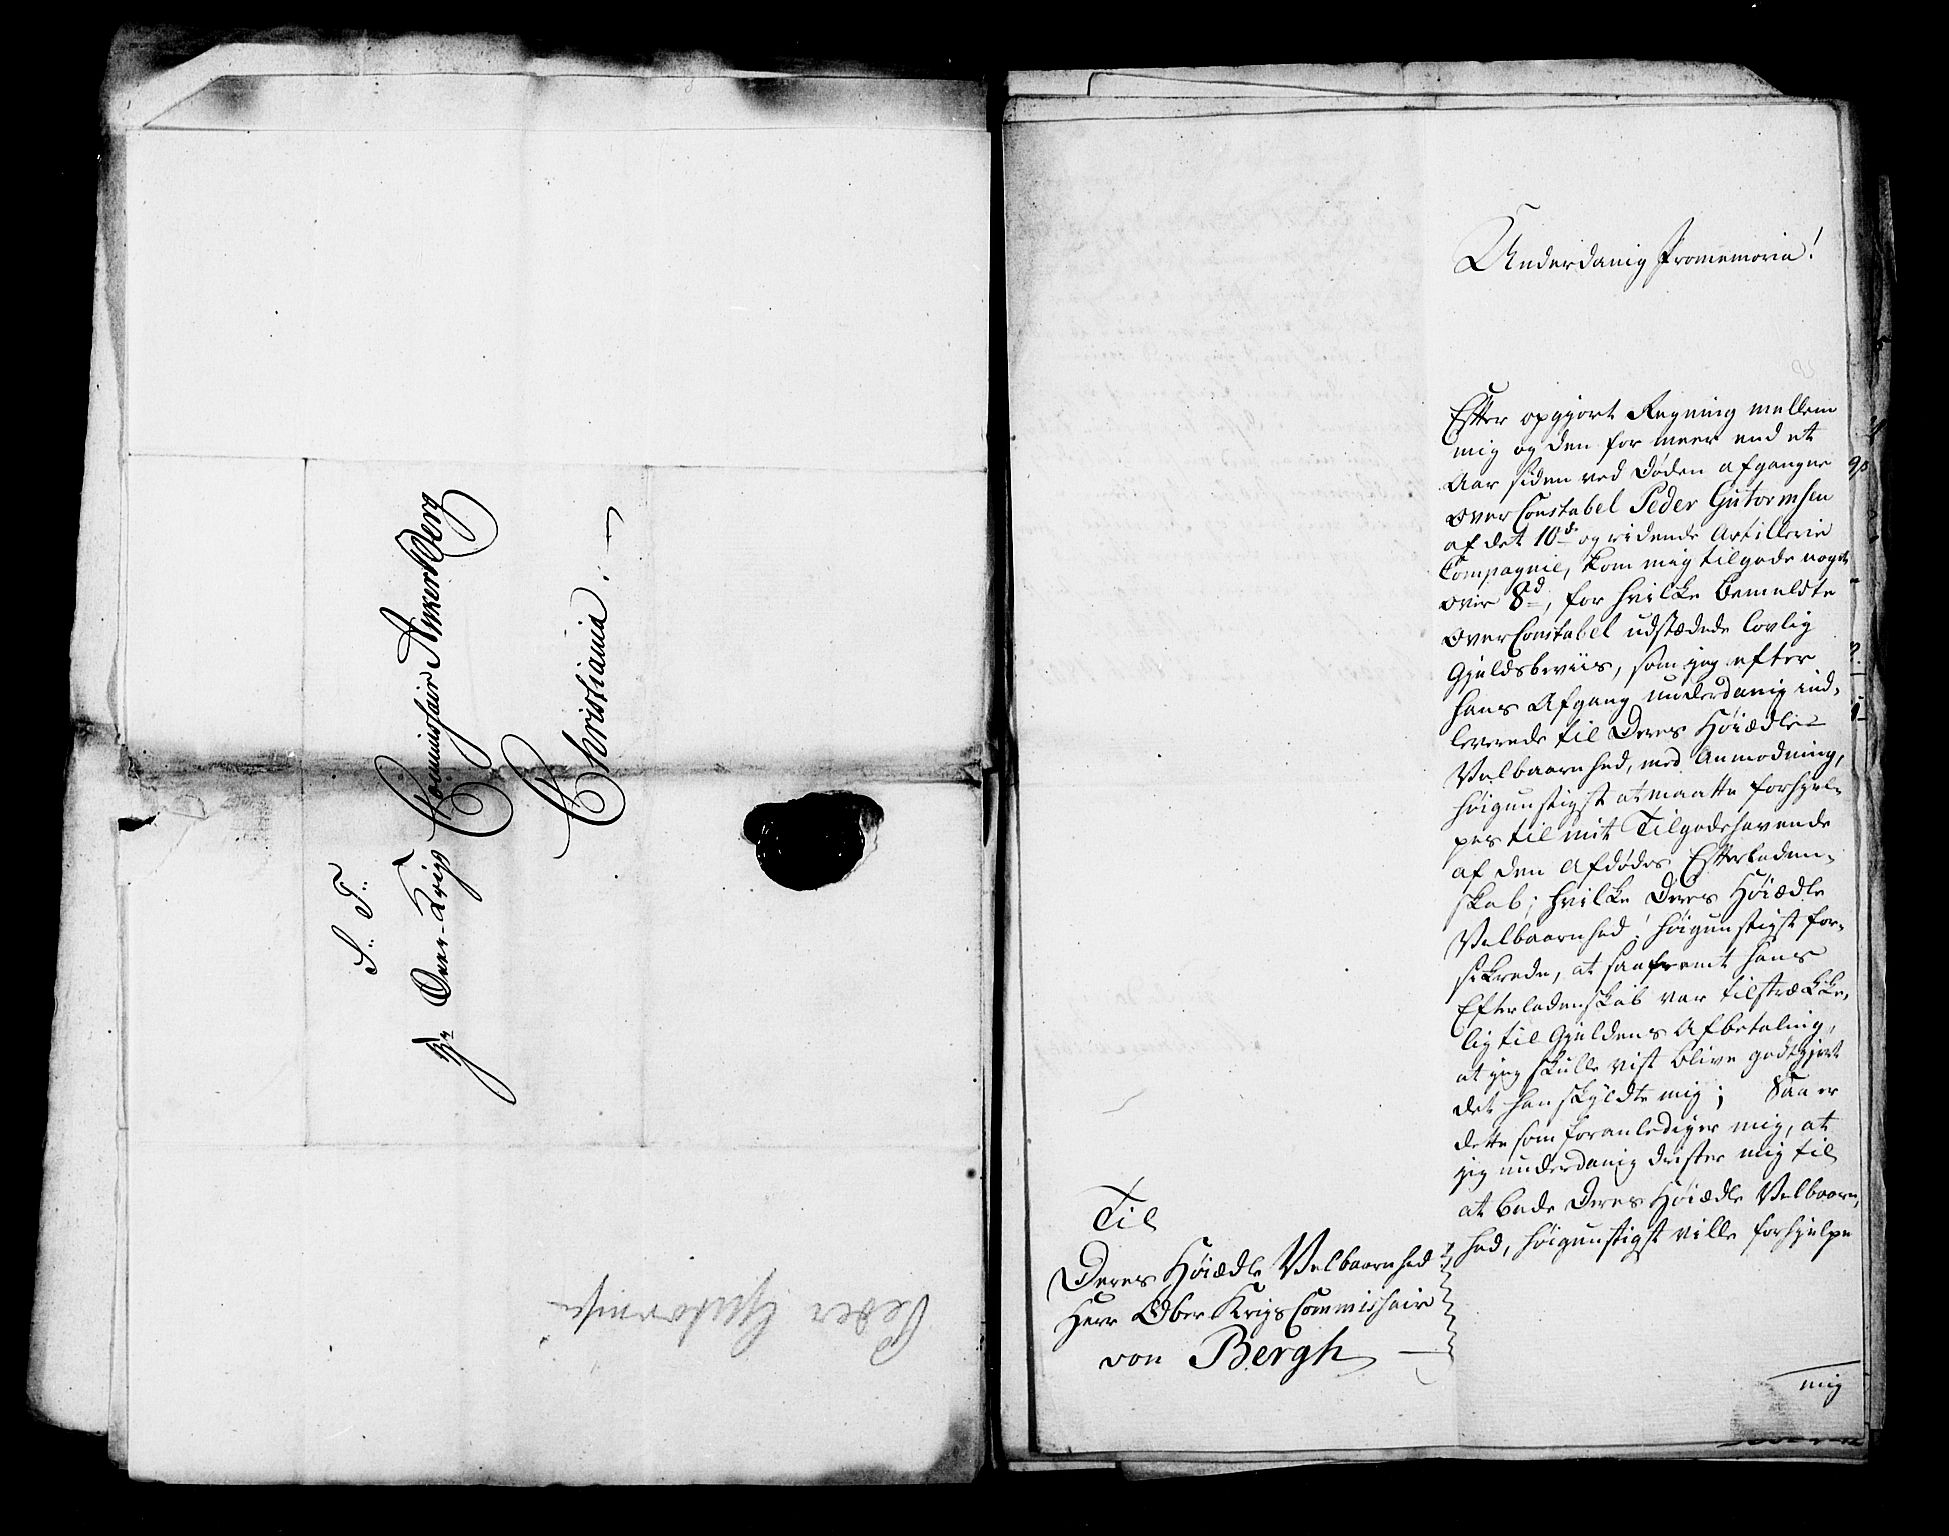 S: T:
Hr Over-Krigs Commissair Anker Berg
Christiania. —
Peder Gutormsen
Underdanig Promemoria!
Efter opgjort Regning mellem
mig og den for meer end et
Aar siden ved Døden afgangne
Over Constabel Peder Gutormsen
af det 10de og ridende Artillerie
Compagnie, kom mig tilgode noget
over 8d, for hvilke bemeldte
Over Constabel udstædede lovlig
Gjeldsbeviis, som jeg efter
hans Afgang underdanig ind-
leverede til Deres Høiædle
Velbaarnhed, med Anmodning,
høigunstigst at maatte forhjel-
pes til mit Tilgodehavende
af den Afdødes Efterladen-
skab; hvilke Deres Høiædle
Velbaarnhed høigunstigst for-
sikrede, at saafremt hans
Efterladenskab var tilstrække-
lig til Gjeldens Afbetaling,
at jeg skulle vist blive godtgjort
det han skyldte mig; Saa er
dette som foranlediger mig, at
jeg underdanig drister mig til
at bede Deres Høiædle Velbaarn-
hed, høigunstigst ville forhjelpe
mig
Til
Deres Høiædle Velbaarnhed
Herr Ober Krigs Commissair
von Bergh